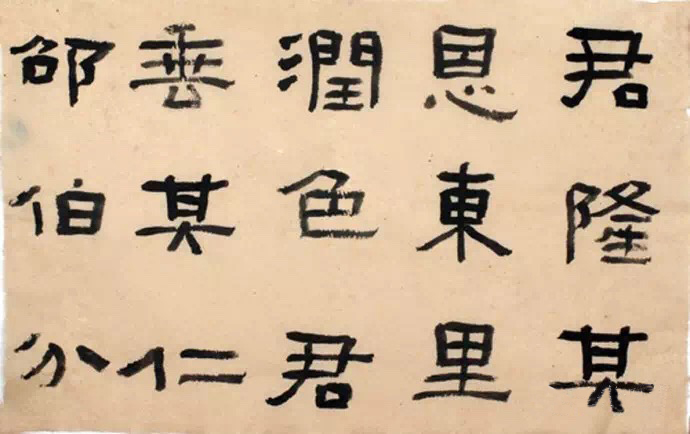 君隆其
恩東里
潤色君
垂其仁
邵伯分